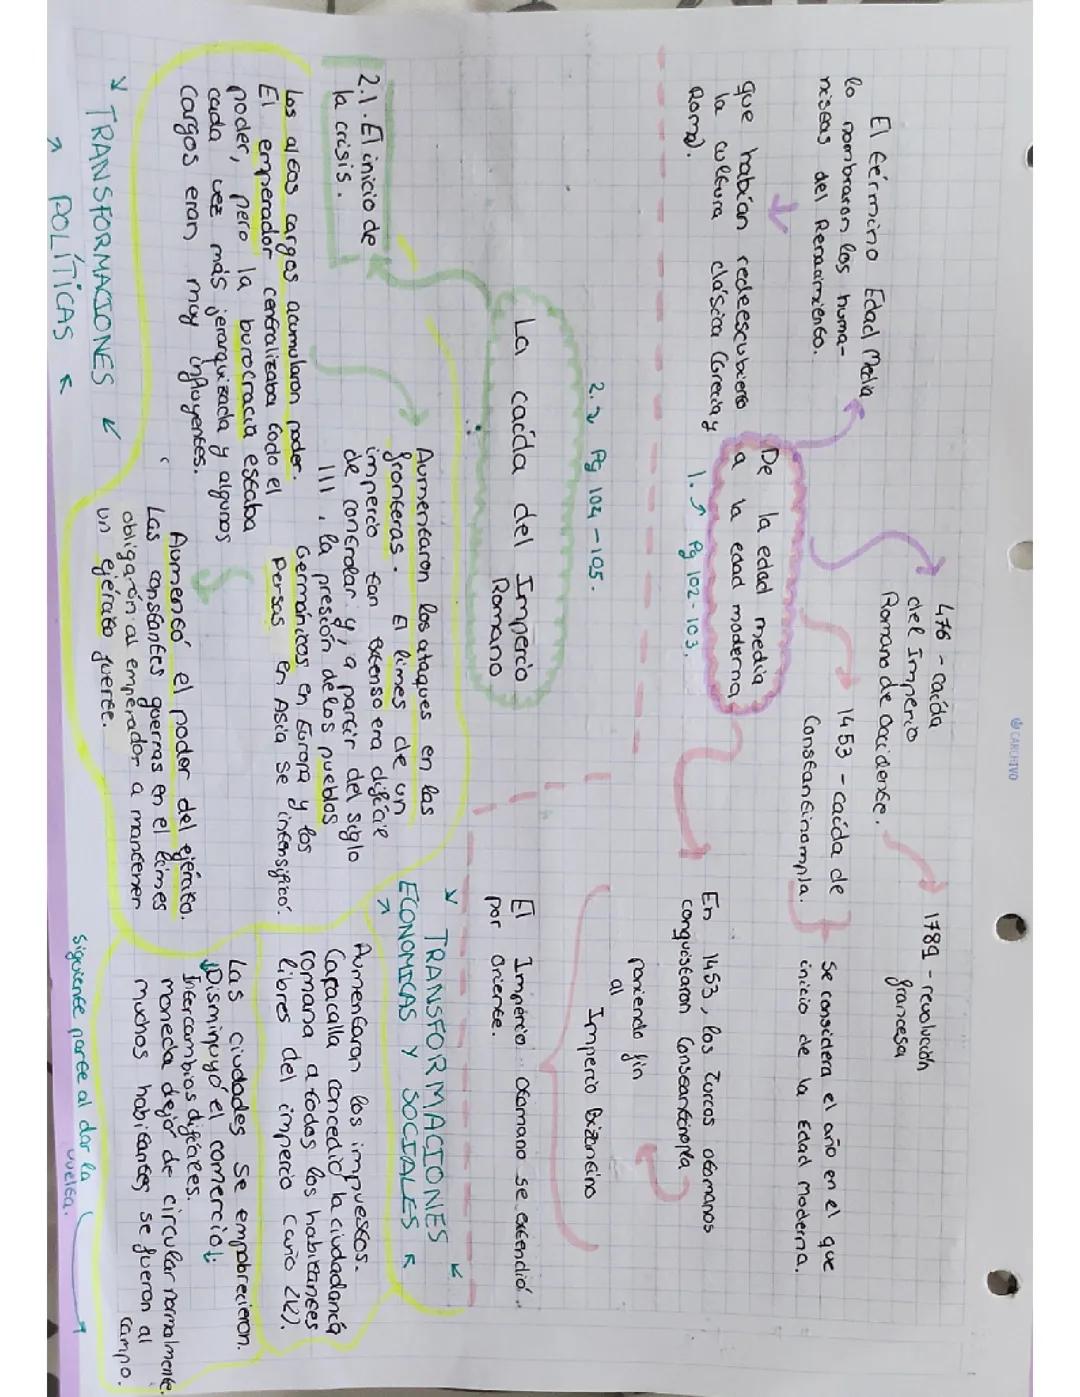 CARCHIVO
El término Edad Media
lo nombraron los huma-
nistas del Renacimiento.
que habían redescubierto
la cultura clásica (Grecia y
Roma).
De la edad media
a la edad moderna
1. Pg 102-103.
476 - caída
del Imperio
Romano de Occidente.
1453 - caída de
Constantinompla.
1789 - revolución
francesa
se considera el año en el que
inicio de la Edad Moderna.
En 1453, los turcos otomanos
conquistaron Constantinopla
poniendo fin
al
Imperio Bizantino
El Imperio otomano se extendió
por oriente.
2.2 Pg 104-105.
La caída del Imperio
Romano
2.1. El inicio de
la crisis.
Los altos cargos acumularon poder.
El emperador centralizaba todo el
poder, pero la burocracia estaba
cada vez más jerarquizada y algunos
cargos eran muy influyentes.
TRANSFORMACIONES
POLÍTICAS
Aumentaron los ataques en las
fronteras. El limes de un
imperio tan extenso era difícil
de controlar y, a partir del siglo
III, la presión de los pueblos
Germánicos en Europa y los
Persas en Asia se intensificó.
Aumentó el poder del ejército.
Las constantes guerras en el limes
obligarón al emperador a mantener
un ejército fuerte.
TRANSFORMACIONES
ECONOMICAS Y SOCIALES
Aumentaron los impuestos.
Caracalla concedió la ciudadanía
romana a todos los habitantes
libres del imperio (año 212).
Las ciudades se empobrecieron.
Disminuyó el comercio:
Intercambios difíciles.
moneda dejó de circular normalmente.
muchos habitantes se fueron al
campo.
siguiente parte al dar la
vuelta.